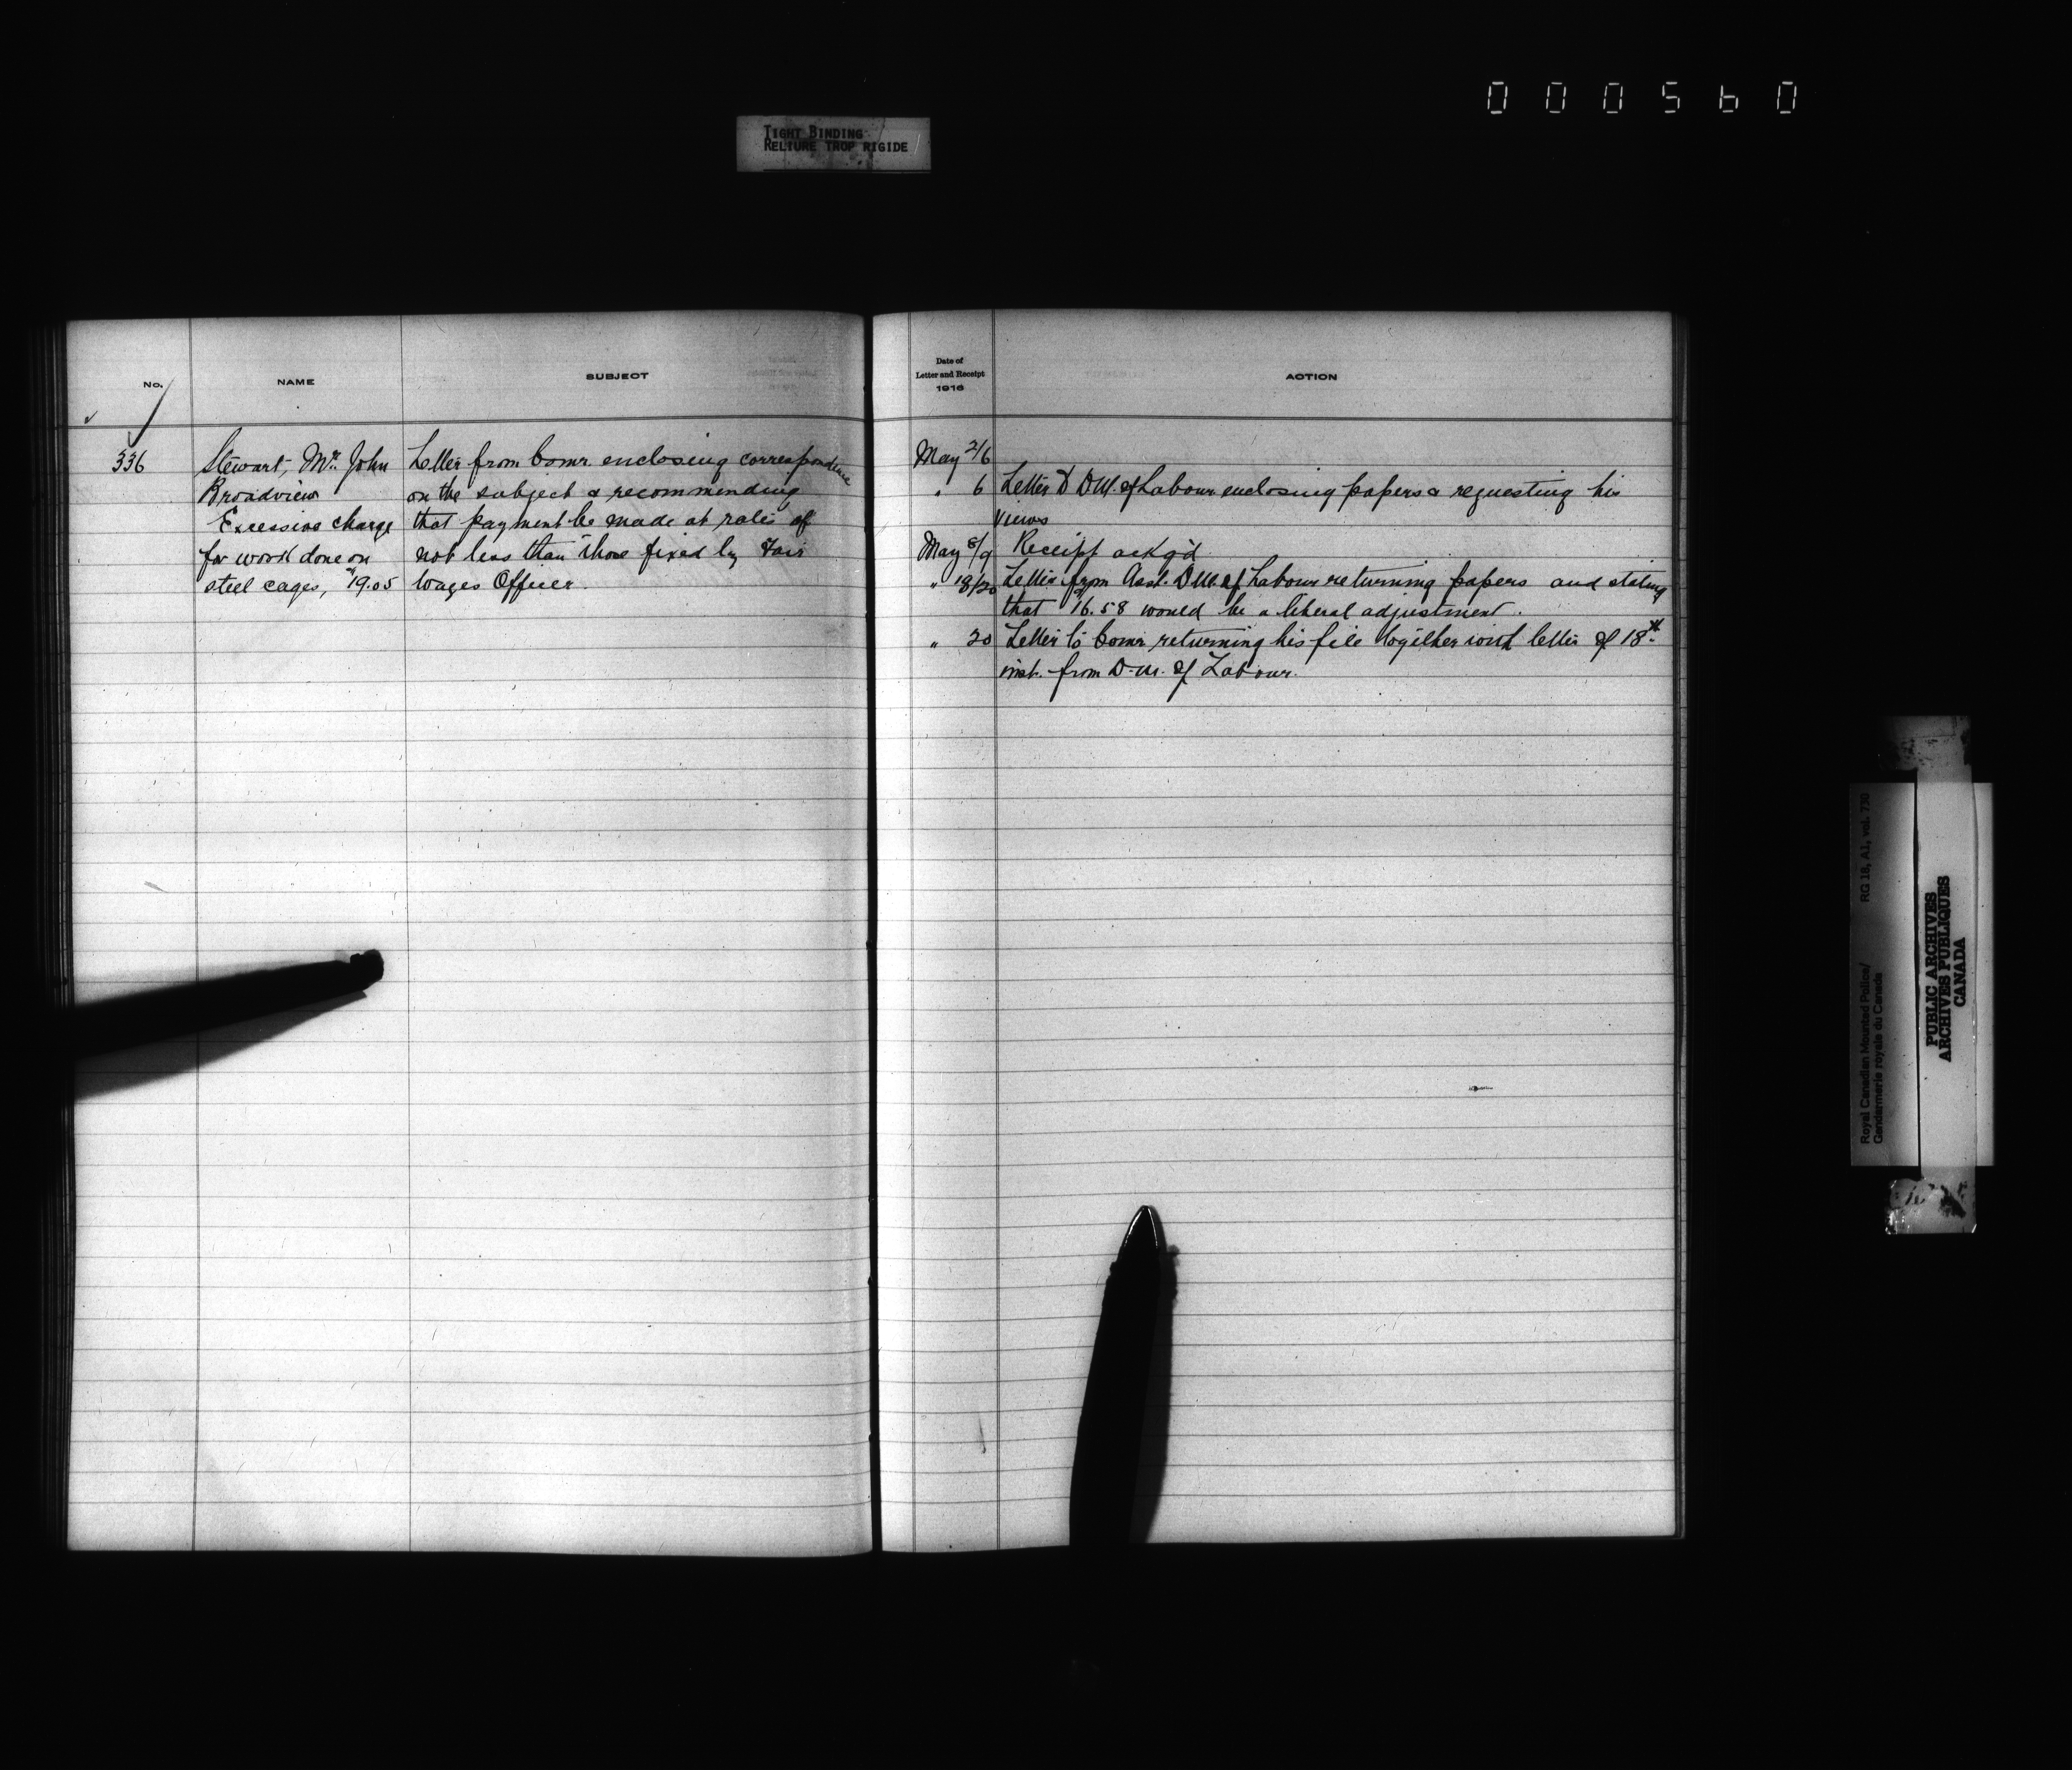 000560
TIGHT BINDING
RELIURE TROP RIGIDE
No.
NAME
SUBJECT
336
Stewart, Mr. John
Broadview
Excessive charge
for work done on
steel cages, $19.05
Letter from Comr. enclosing correspondence
on the subject & recommending
that payment be made at rates of
not less than those fixed by Fair
Wages Officer.
Date of
Letter and Receipt
1916
ACTION
May 2/6
" 6 Letter to D.M. of Labour enclosing papers & requesting his
views
May 8/9 Receipt ackg'd
" 18/20 Letter from Asst. D.M. of Labour returning papers and stating
that $16.58 would be a liberal adjustment.
" 20 Letter to Comr. returning his file together with letter of 18th
inst. from D.M. of Labour.
Royal Canadian Mounted Police/
Gendarmerie royale du Canada
RG 18, A1, vol. 730
PUBLIC ARCHIVES
ARCHIVES PUBLIQUES
CANADA